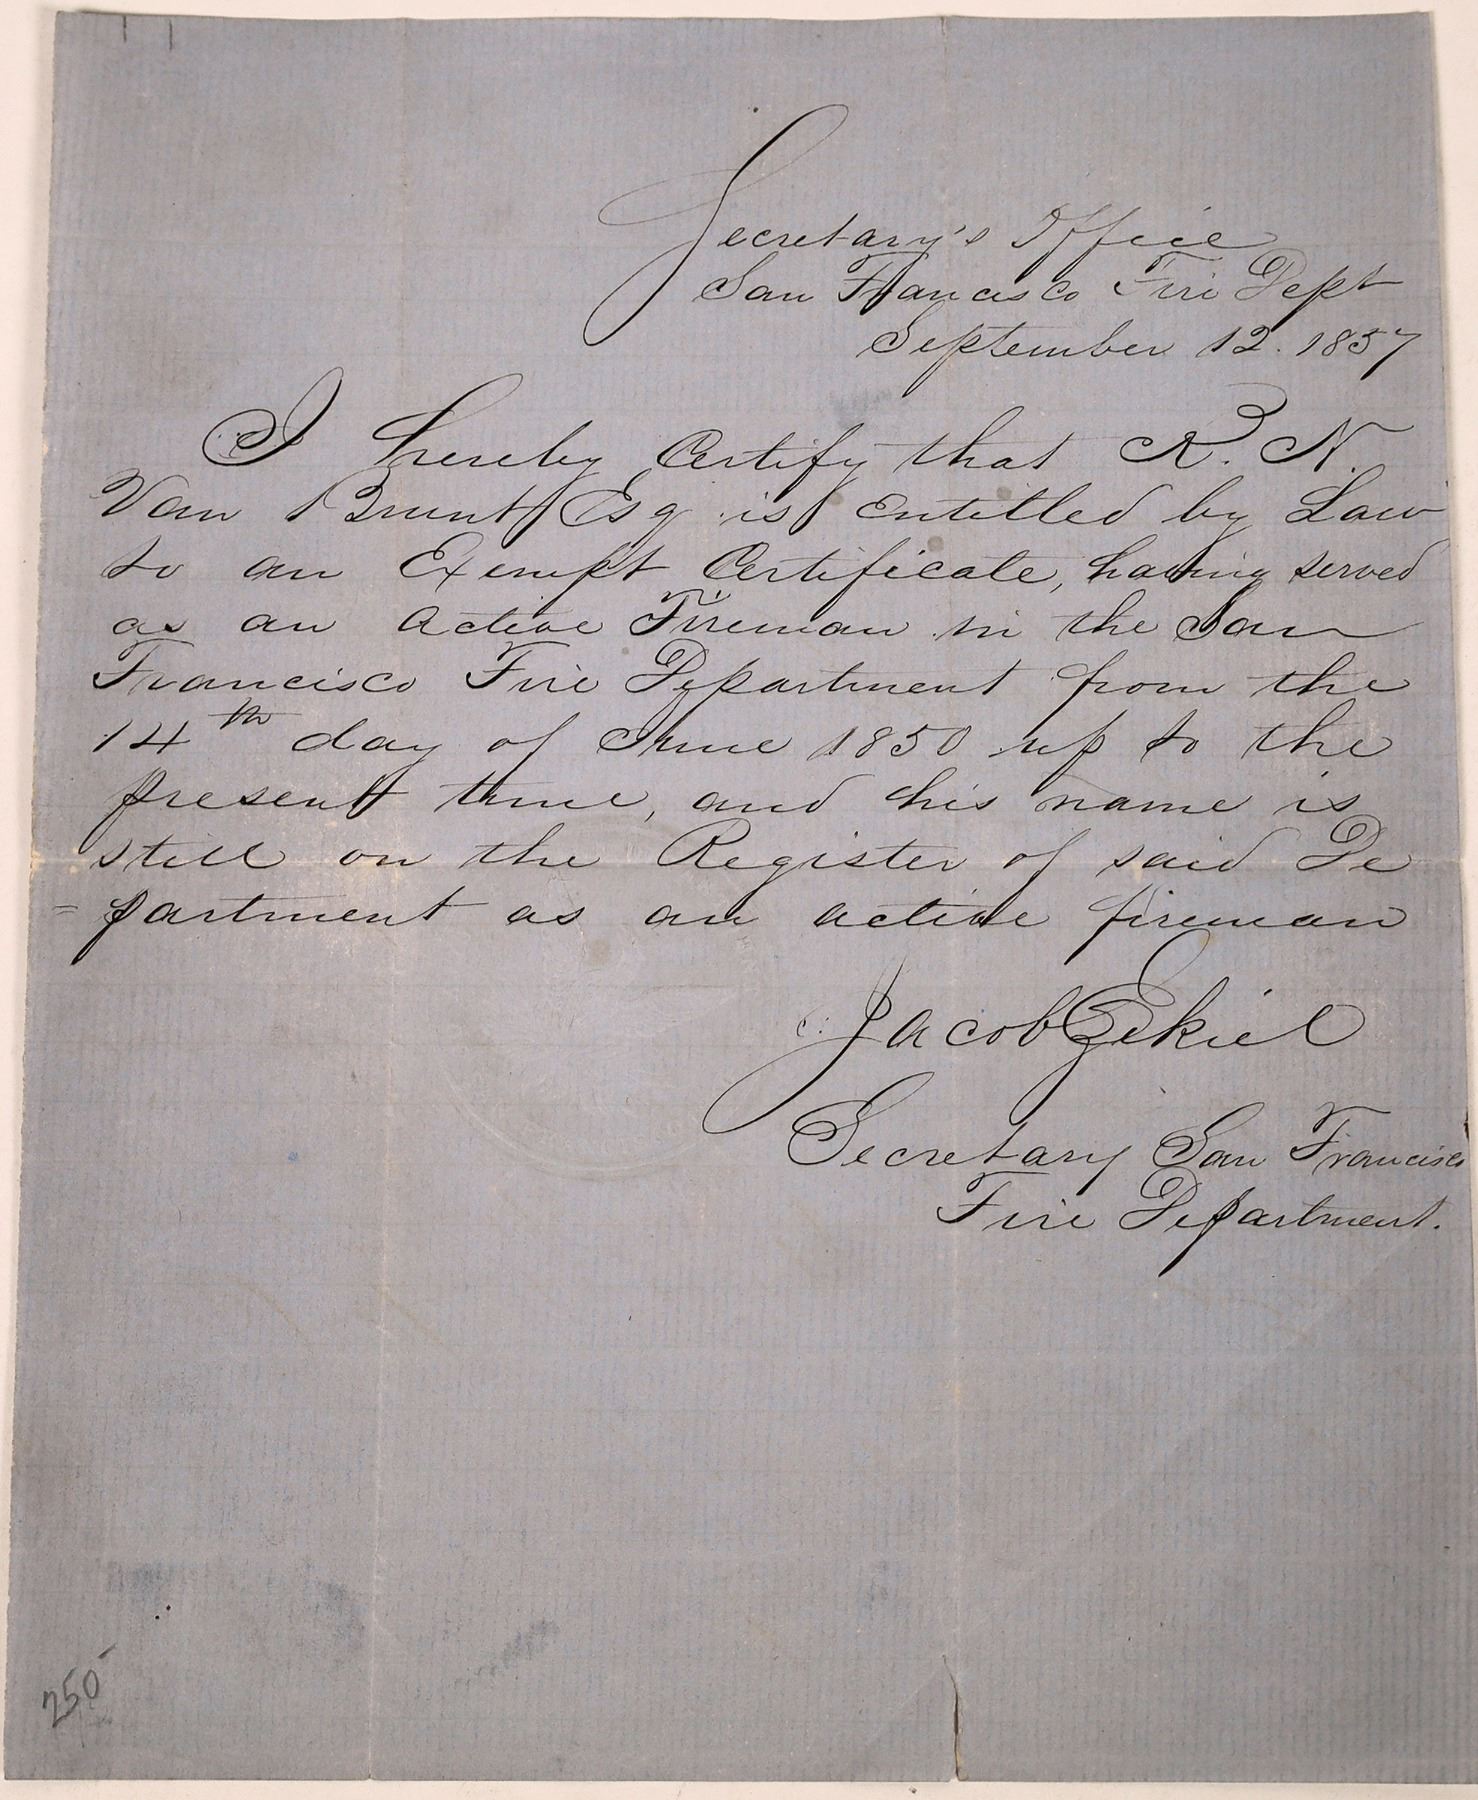 Secretary's Office
San Francisco Fire Dept
September 12. 1857
I hereby Certify that R. N.
Van Brunt Esq is entitled by Law
to an Exempt Certificate, having served
as an active Fireman in the San
Francisco Fire Department from the
14th day of June 1850 up to the
present time, and his name is
still on the Register of said De
= partment as an active fireman
Jacob Ezekiel
Secretary San Francisco
Fire Department.
250